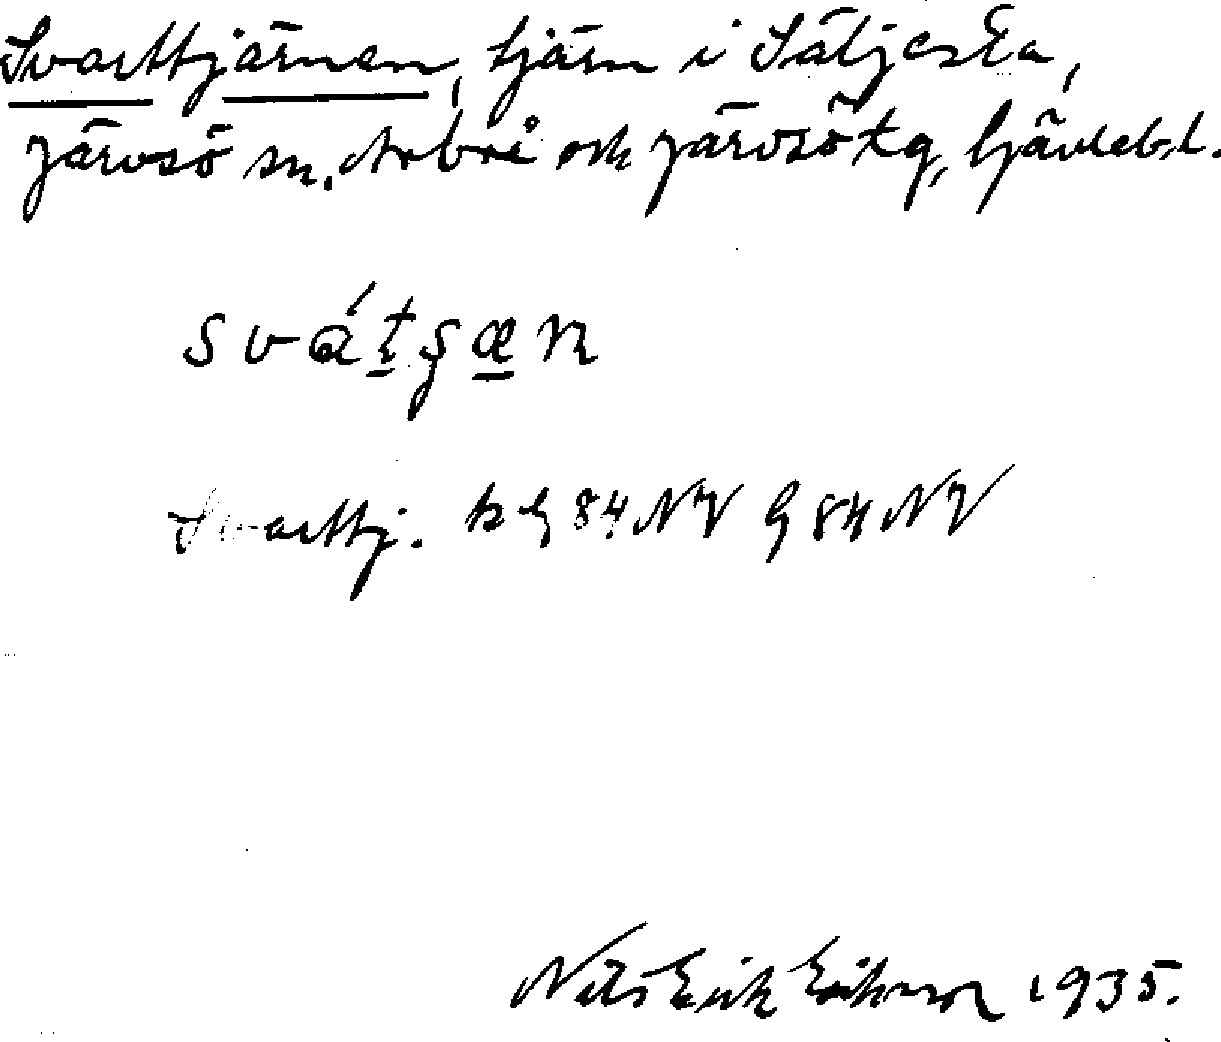 Svarttjärnen, tjärn i Säljeska,
Järvsö sn. Arbrå och Järvsö tg, Gävleb. l.
svátʂæn
Svarttj. k G 84 NV G 84 NV
Nils Erik Erikson 1935.